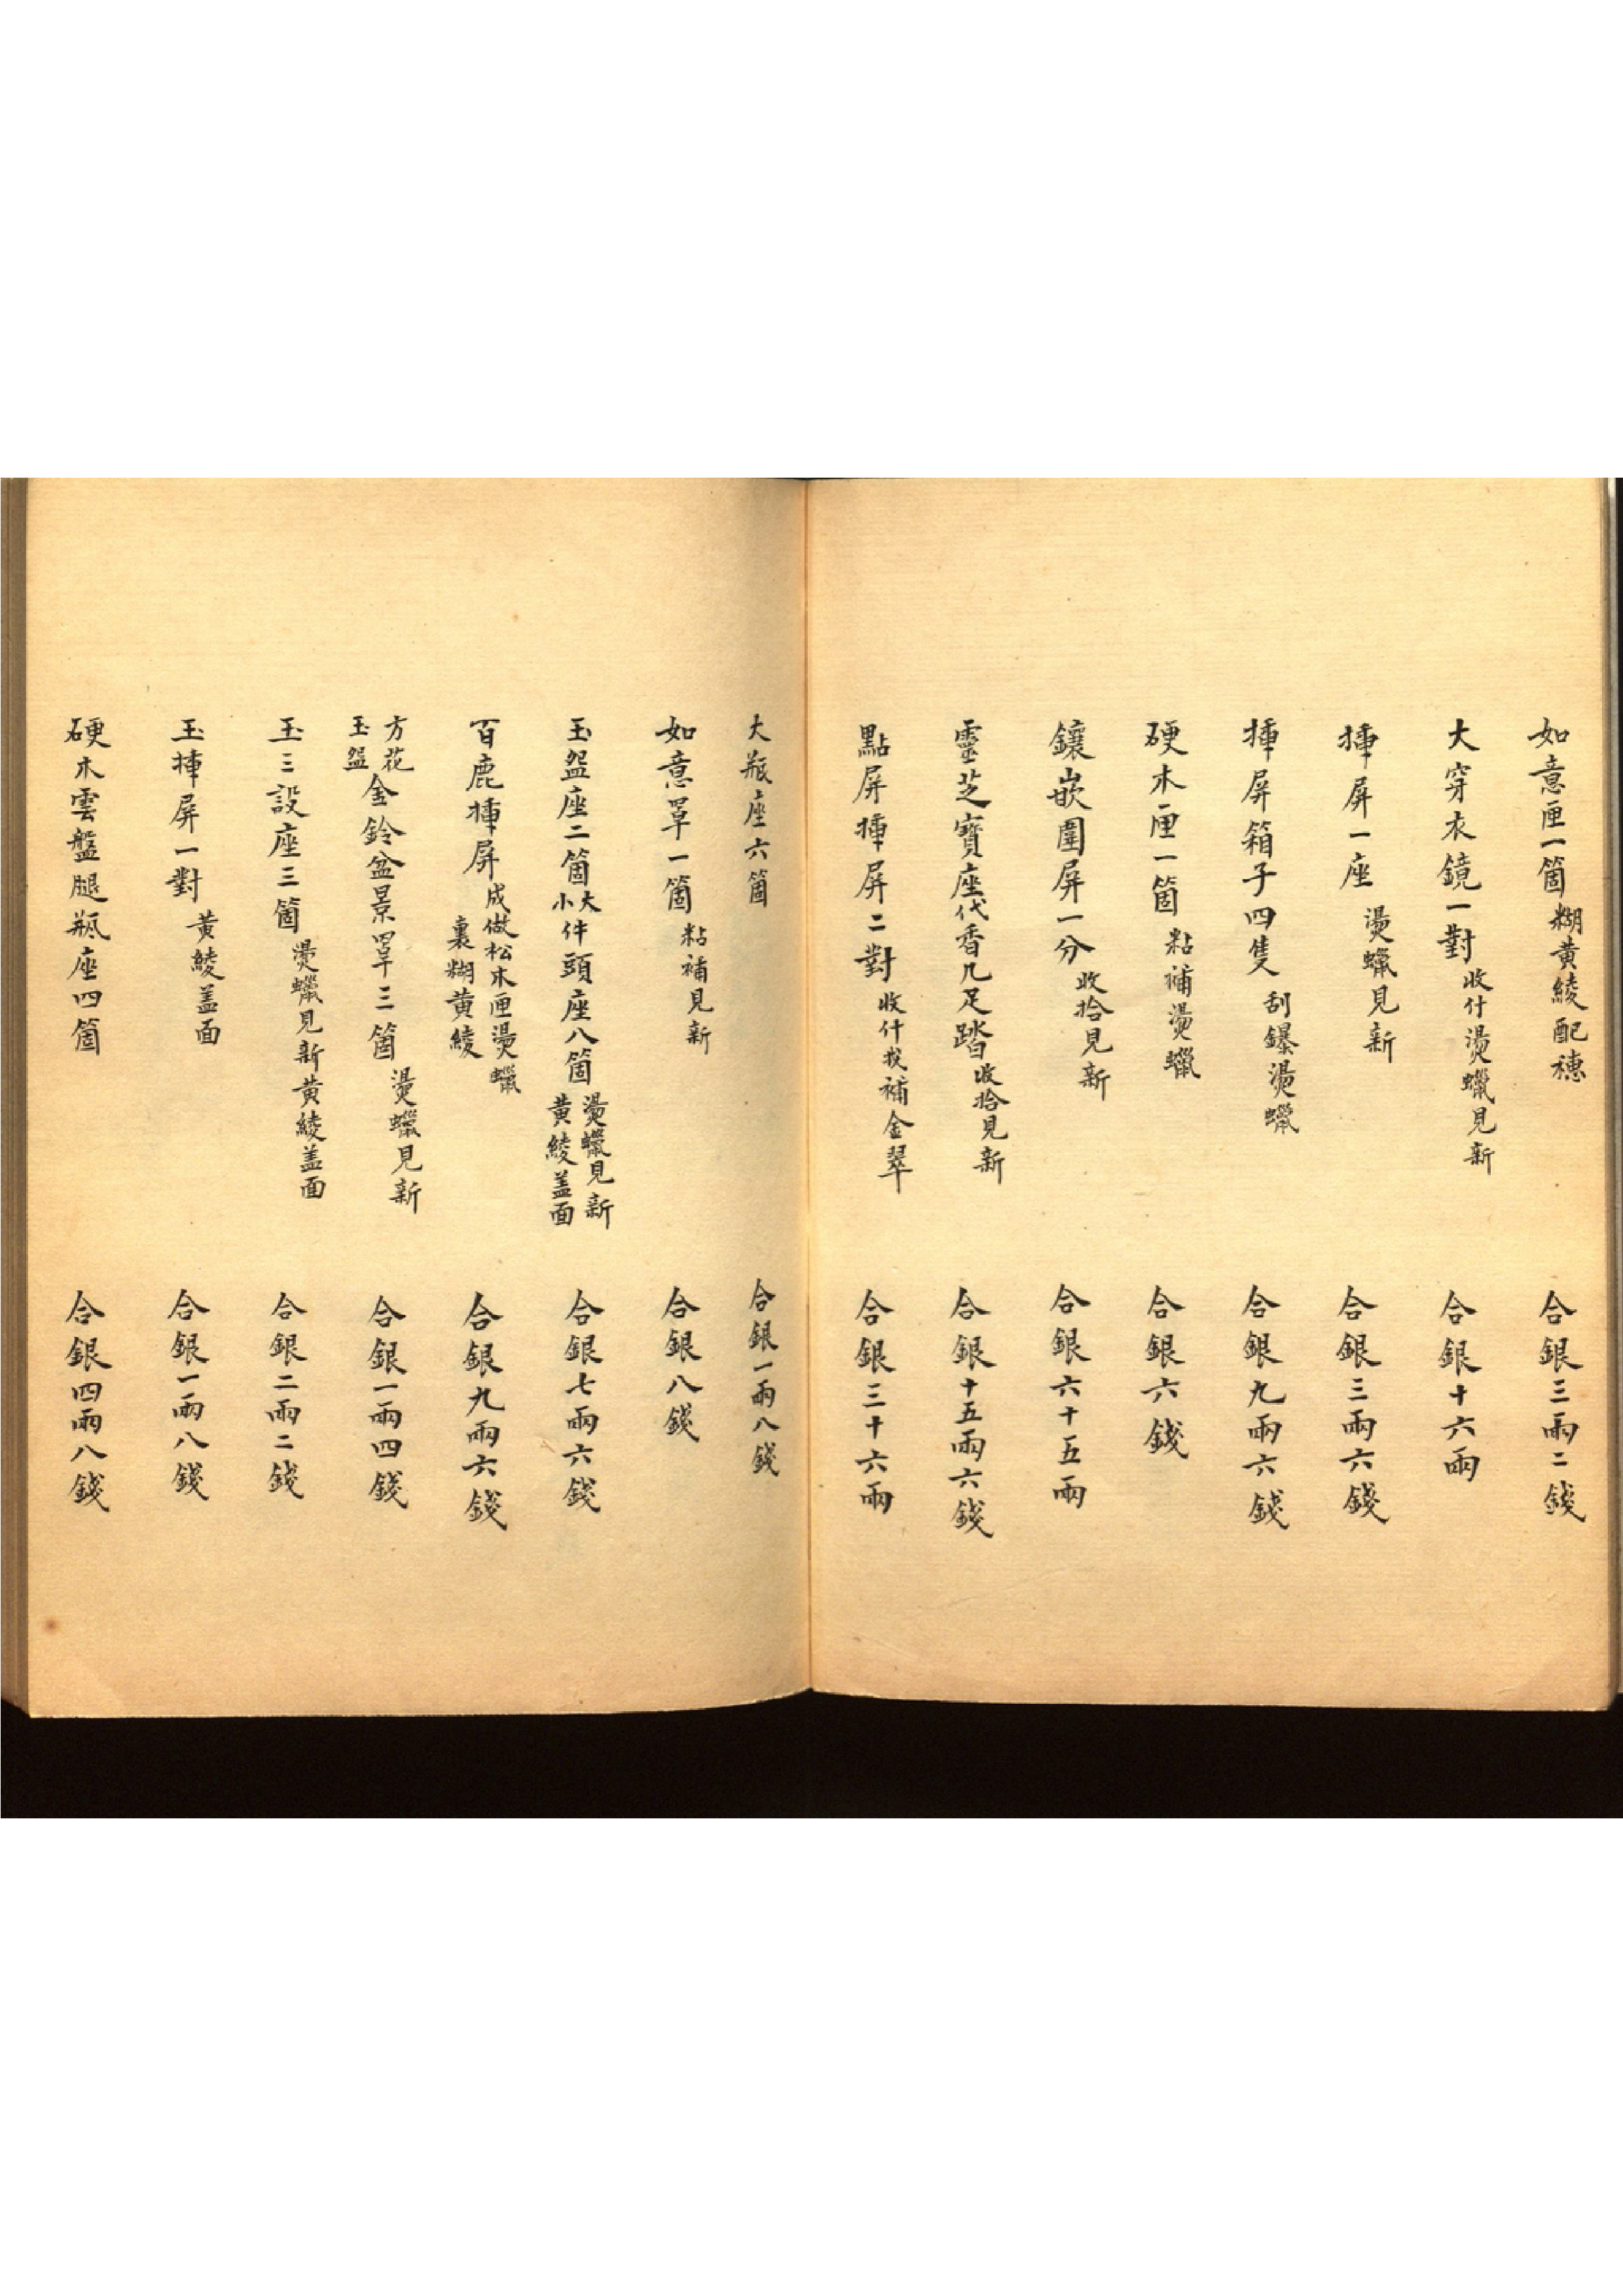 如意匣一箇糊黃綾配穗 合銀三兩二錢
大穿衣鏡一對收什燙蠟見新 合銀十六兩
挿屏一座燙蠟見新 合銀三兩六錢
挿屏箱子四隻刮鏍燙蠟 合銀九兩六錢
硬木匣一箇粘補燙蠟 合銀六錢
鑲嵌圍屏一分收拾見新 合銀六十五兩
靈芝寶座代香几足踏收拾見新 合銀十五兩六錢
點屏挿屏二對收什找補金翠 合銀三十六兩
大瓶座六箇 合銀一兩八錢
如意罩一箇粘補見新 合銀八錢
玉盌座二箇大小件頭座八箇燙蠟見新黃綾盖面 合銀七兩六錢
百鹿挿屏成做松木匣燙蠟裏糊黃綾 合銀九兩六錢
方花玉盌金鈴盆景罩三箇燙蠟見新 合銀一兩四錢
玉三設座三箇燙蠟見新黃綾盖面 合銀二兩二錢
玉挿屏一對黃綾盖面 合銀一兩八錢
硬木雲盤腿瓶座四箇 合銀四兩八錢